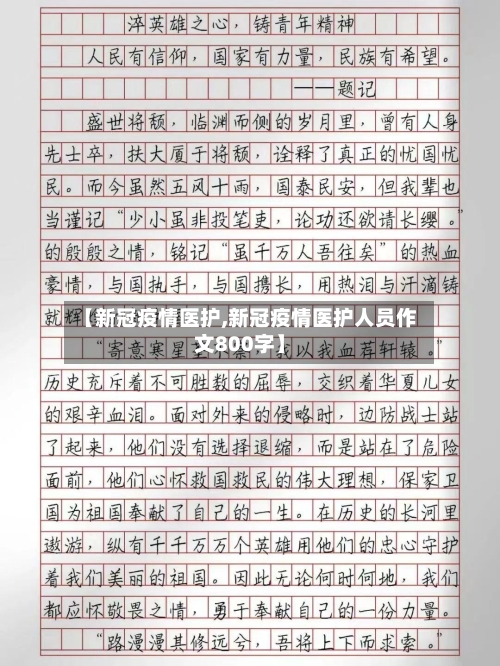 淬英雄之心，铸青年精神
人民有信仰，国家有力量，民族有希望。
——题记
盛世将颓，临渊而侧的岁月里，曾有人身
先士卒，扶大厦于将颓，诠释了真正的忧国忧
民。而今虽然五风十雨，国泰民安，但我辈也
当谨记“少小虽非投笔吏，论功还欲请长缨。”
的殷殷之情，铭记“虽千万人吾往矣”的热血
豪情，与国执手，与国携长，用热泪与汗滴铸
就辉
【新冠疫情医护,新冠疫情医护人员作
文800字】
“寄意寒星 我以我血荐轩辕。”
历史充斥着不可胜数的屈辱，交织着华夏儿女
的艰辛血泪。面对外来的侵略时，边防战士站
了起来，他们没有选择退缩，而是站在了危险
面前，他们心怀救国救民的伟大理想，保家卫
国为祖国奉献了自己的一生。在历史的长河里
遨游，纵有千千万万个英雄用他们的忠心守护
着我们美丽的祖国。因此无论何时何地，我们
都应怀敬畏之情，勇于奉献自己的一份力量。
“路漫漫其修远兮，吾将上下而求索。”